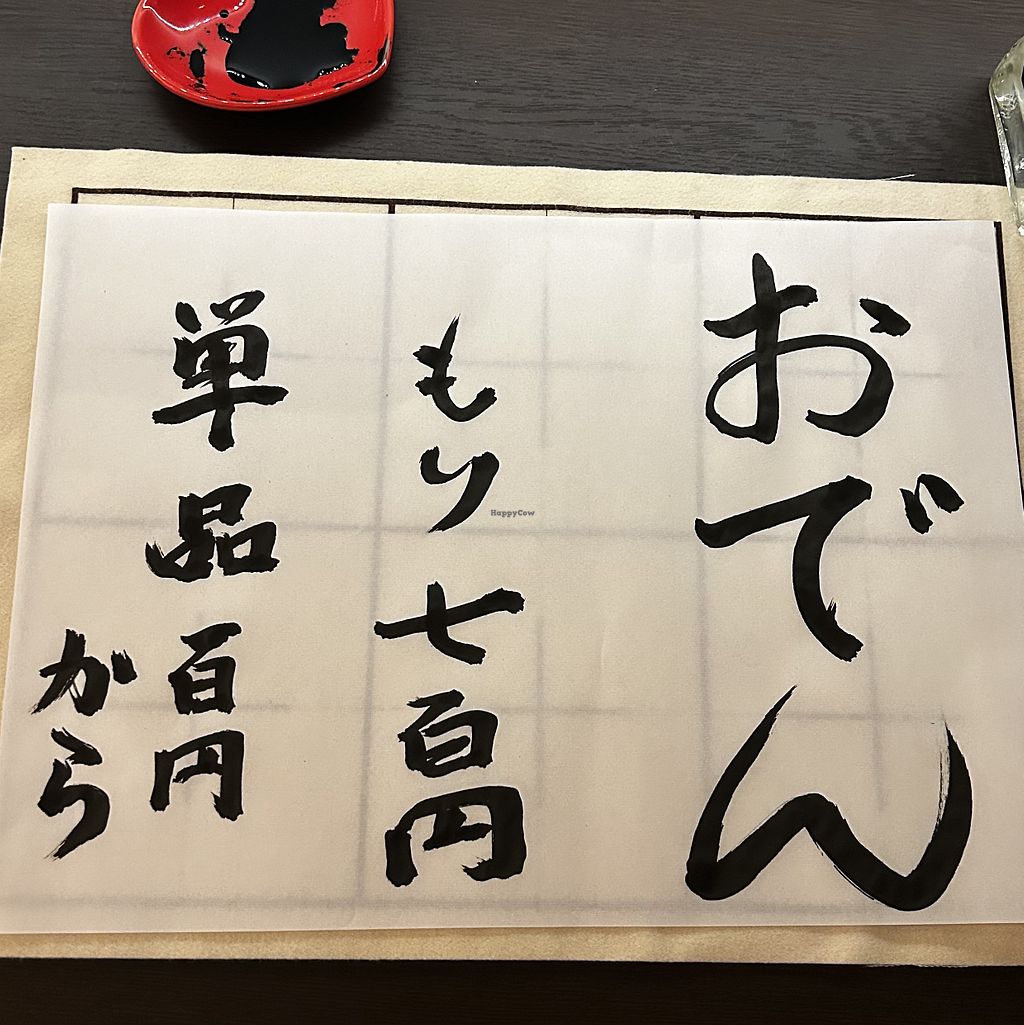 おでん
もり七百円
単品百円
から
HappyCow